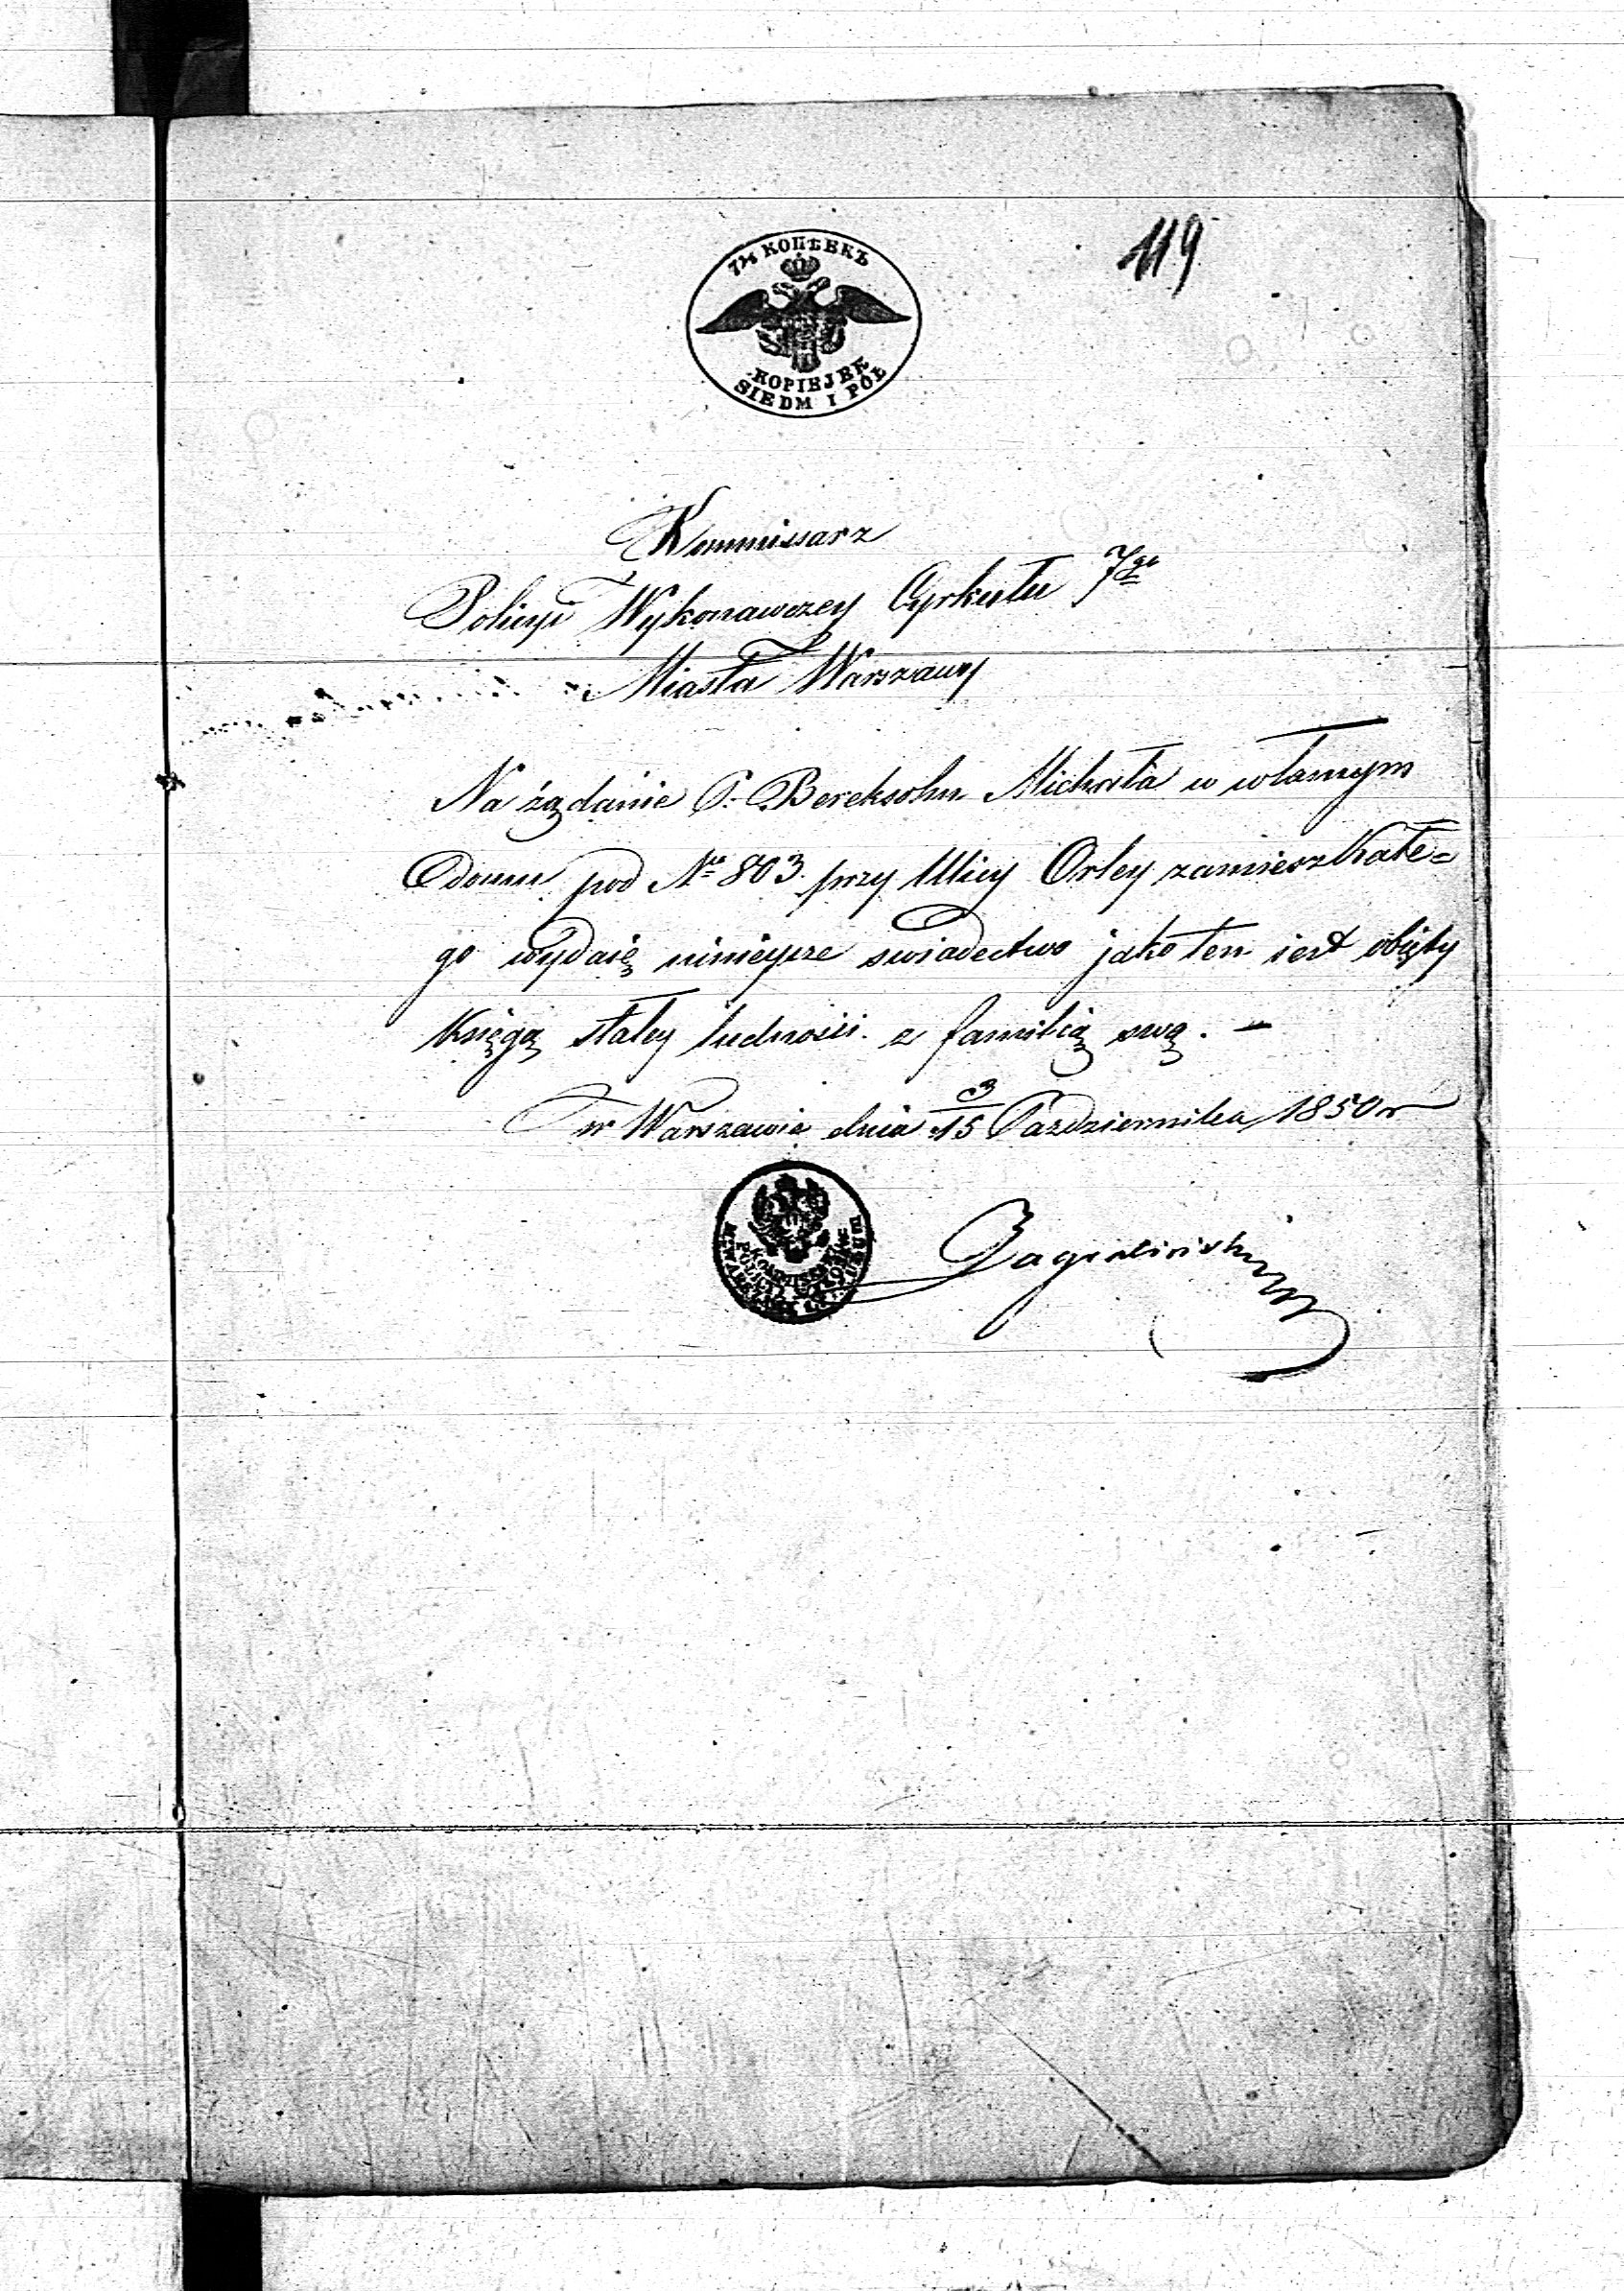 119
7½ КОПѢЕКЪ
KOPIEJEK
SIEDM I PÓŁ
Kommissarz
Policyi Wykonawczey Cyrkułu 7go
Miasta Warszawy
Na żądanie P. Bereksohn Michała w własnym
domu pod No 803 przy Ulicy Orley zamieszkałe=
go wydaię ninieysze swiadectwo jako ten iest obięty
Księgą stałey ludności z familią swą. —
w Warszawie dnia 3/15 Października 1850 r